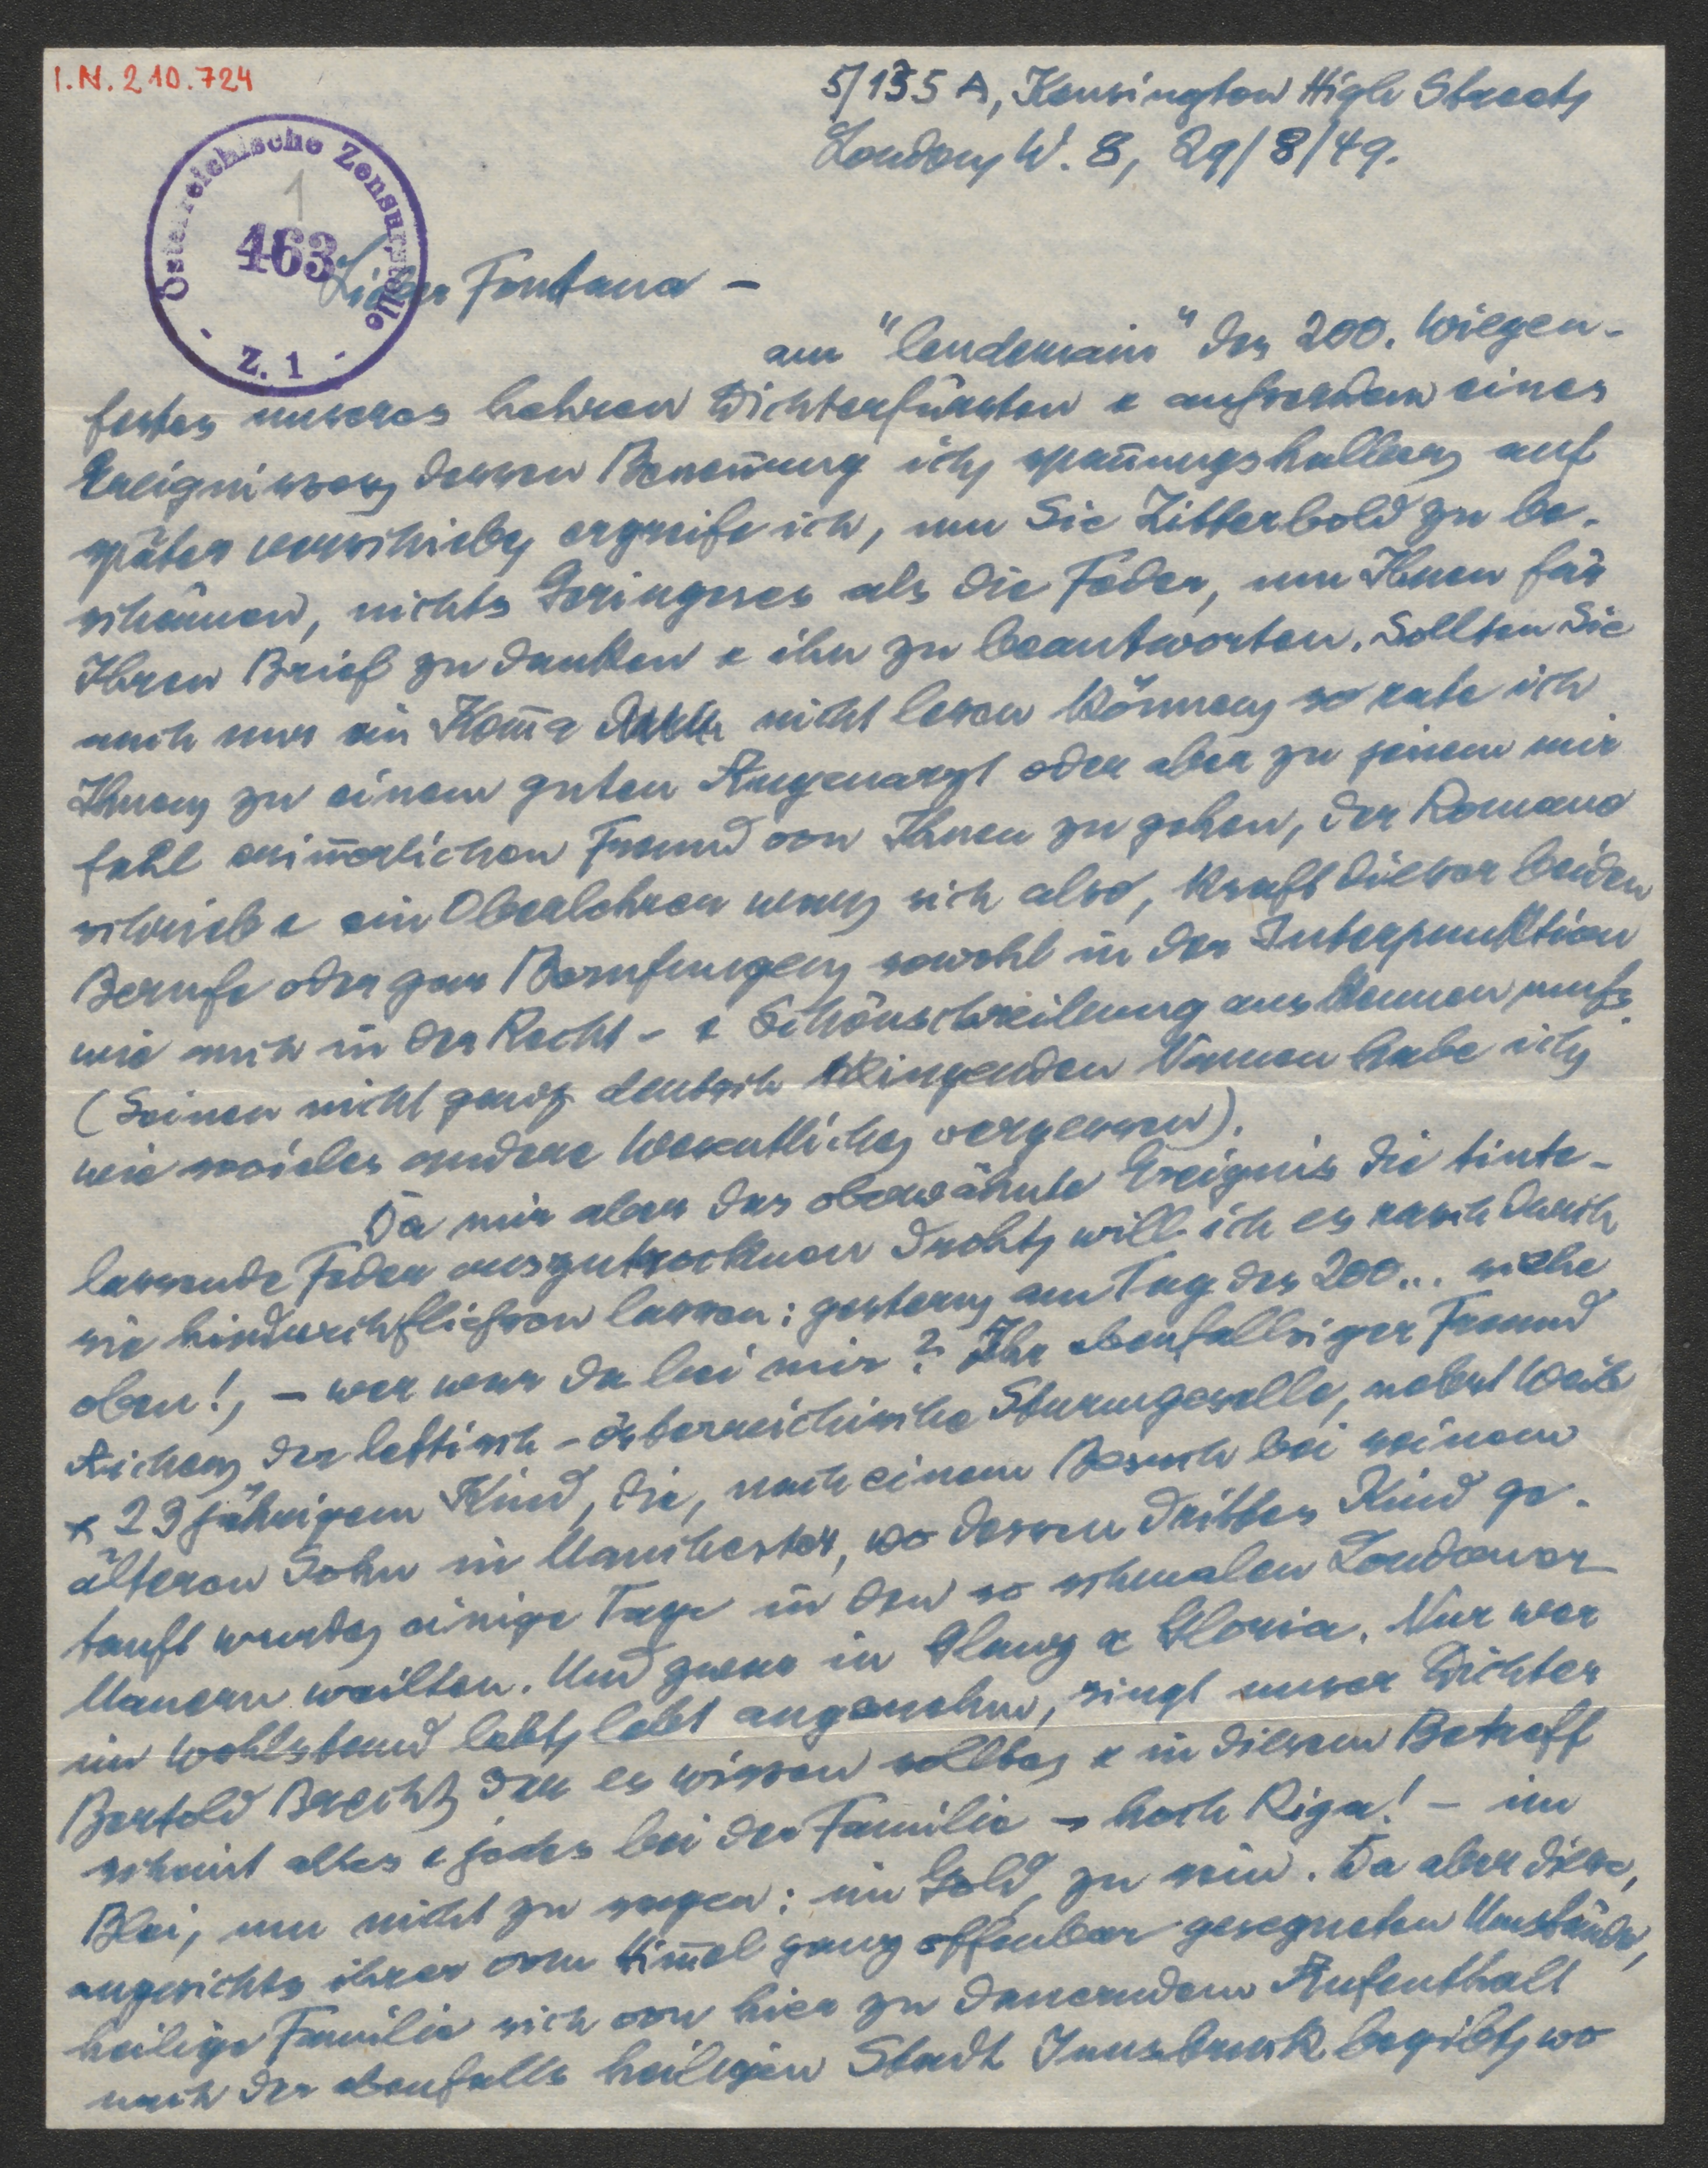 I.N. 210.724
5/135 A, Kensington High Street,
London, W. 8, 29/8/49.
Österreichische Zensurstelle
1
463
Z. 1
Lieber Fontana –
am "lendemain" des 200. Wiegen-
festes unseres hehren Dichterfürsten & ausserdem eines
Ereignisses, dessen Benennung ich, spannungshalber, auf
später verschiebe, ergreife ich, um Sie Zitterbold zu be-
schämen, nichts Geringeres als die Feder, um Ihnen für
Ihren Brief zu danken & ihn zu beantworten. Sollten Sie
auch nur ein Kom̄a nicht lesen können, so rate ich
Ihnen, zu einem guten Augenarzt oder aber zu jenem mir
fahl erin̄erlichen Freund von Ihnen zu gehen, der Romane
schrieb & ein Oberlehrer war, sich also, kraft dieser beiden
Berufe oder gar Berufungen, sowohl in der Interpunktion
wie auch in der Recht- & Schönschreibung auskennen muss.
(Seinen nicht ganz deutsch klingenden Namen habe ich,
wie so vieles andere Wesentliche, vergessen).
Da mir aber das oberwähnte Ereignis die tinte-
lassende Feder auszutrocknen droht, will ich es rasch durch
sie hindurchfliessen lassen: gestern, am Tag des 200... siehe
oben!, – wer war da bei mir? Ihr ebenfallsiger Freund
der lettisch-österreichische Sturmgeselle, nebst Weib
& 23 jährigem Kind, die, nach einem Besuch bei seinem
älteren Sohn in Manchester, wo dessen drittes Kind ge-
tauft wurde, einige Tage in den so schmalen Londoner
Mauern weilten. Und zwar in Glanz & Gloria. Nur wer
im Wohlstand lebt, lebt angenehm, singt unser Dichter
Bertold Brecht, der es wissen sollte, & in diesem Betreff
scheint alles & jedes bei der Familie – hoch Riga! – im
Blei, um nicht zu sagen: im Gold, zu sein. Da aber diese,
angesichts ihrer vom Him̄el ganz offenbar gesegneten Umstände,
heilige Familie sich von hier zu dauerndem Aufenthalt
nach der ebenfalls heiligen Stadt Innsbruck begibt, wo